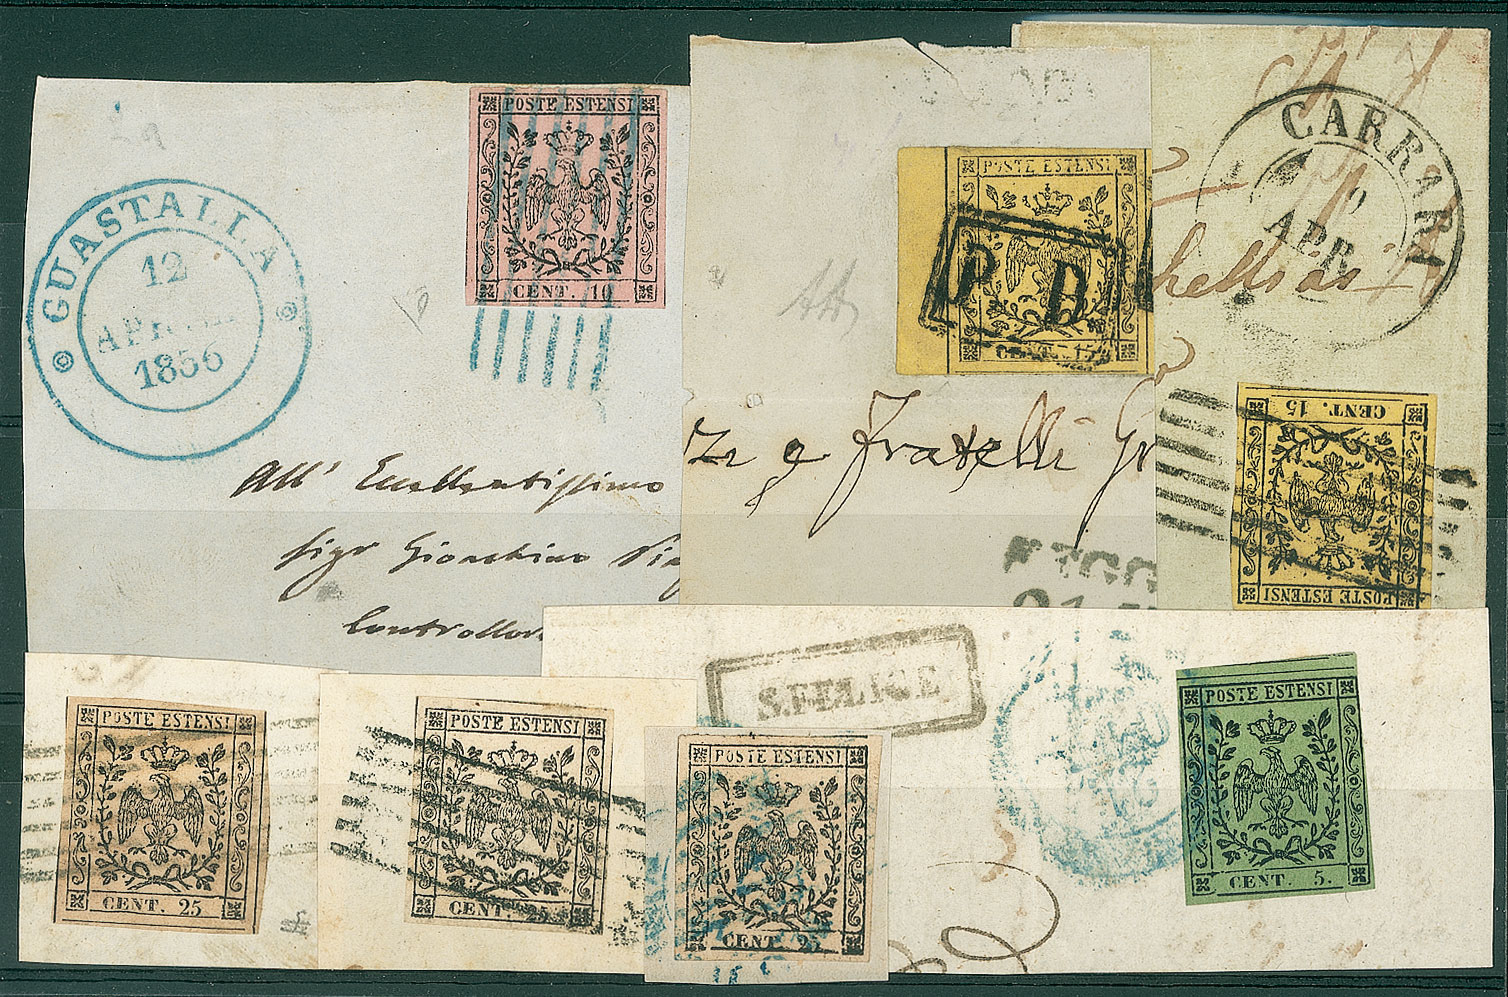 GUASTALLA
12
APRILE
1856
POSTE ESTENSI
CENT. 10
All' Eccellentissimo
Sigr Gioachino
Controllor
POSTE ESTENSI
P D
CENT. 15
e Fratelli
REGG
CARRARA
APR
CENT. 15
POSTE ESTENSI
S. FELICE
POSTE ESTENSI
CENT. 5.
POSTE ESTENSI
CENT. 25
POSTE ESTENSI
CENT. 25
POSTE ESTENSI
CENT. 25